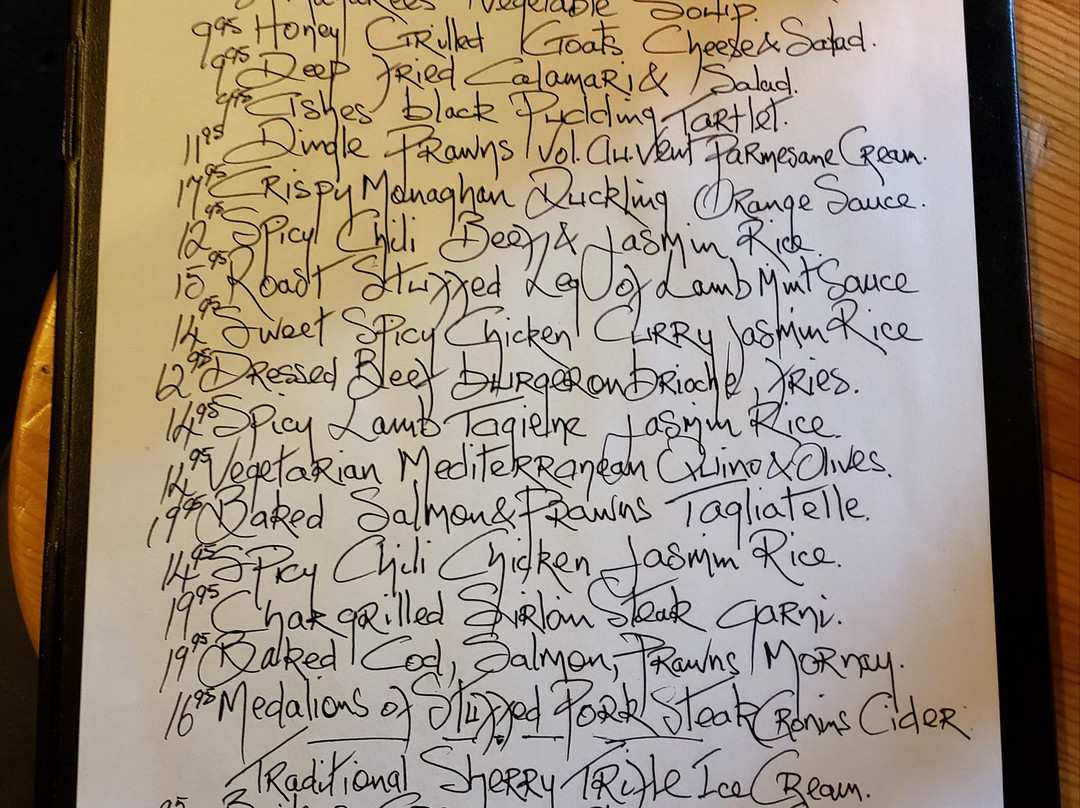 Vegetable Soup.
9.95 Honey Grilled Goats Cheese & Salad.
9.95 Deep Fried Calamari & Salad.
9.95 Cishes black Pudding Tartlet.
11.95 Dingle Prawns Vol.Au.Vent Parmesane Cream.
17.95 Crispy Monaghan Duckling Orange Sauce.
12.95 Spicy Chili Beef & Jasmin Rice
15.95 Roast Stuffed Leg of Lamb Mint Sauce
14.95 Sweet Spicy Chicken Curry Jasmin Rice
12.95 Dressed Beef burger on Brioche, Fries.
14.95 Spicy Lamb Tagiene Jasmin Rice.
14.95 Vegetarian Mediterranean Quino & Olives.
19.95 Baked Salmon & Prawns Tagliatelle.
14.95 Spicy Chili Chicken Jasmin Rice.
19.95 Char grilled Sirloin Steak garni.
19.95 Baked Cod, Salmon, Prawns Mornay.
16.95 Medalions of Stuffed Pork Steak Cronins Cider
Traditional Sherry Trifle Ice Cream.